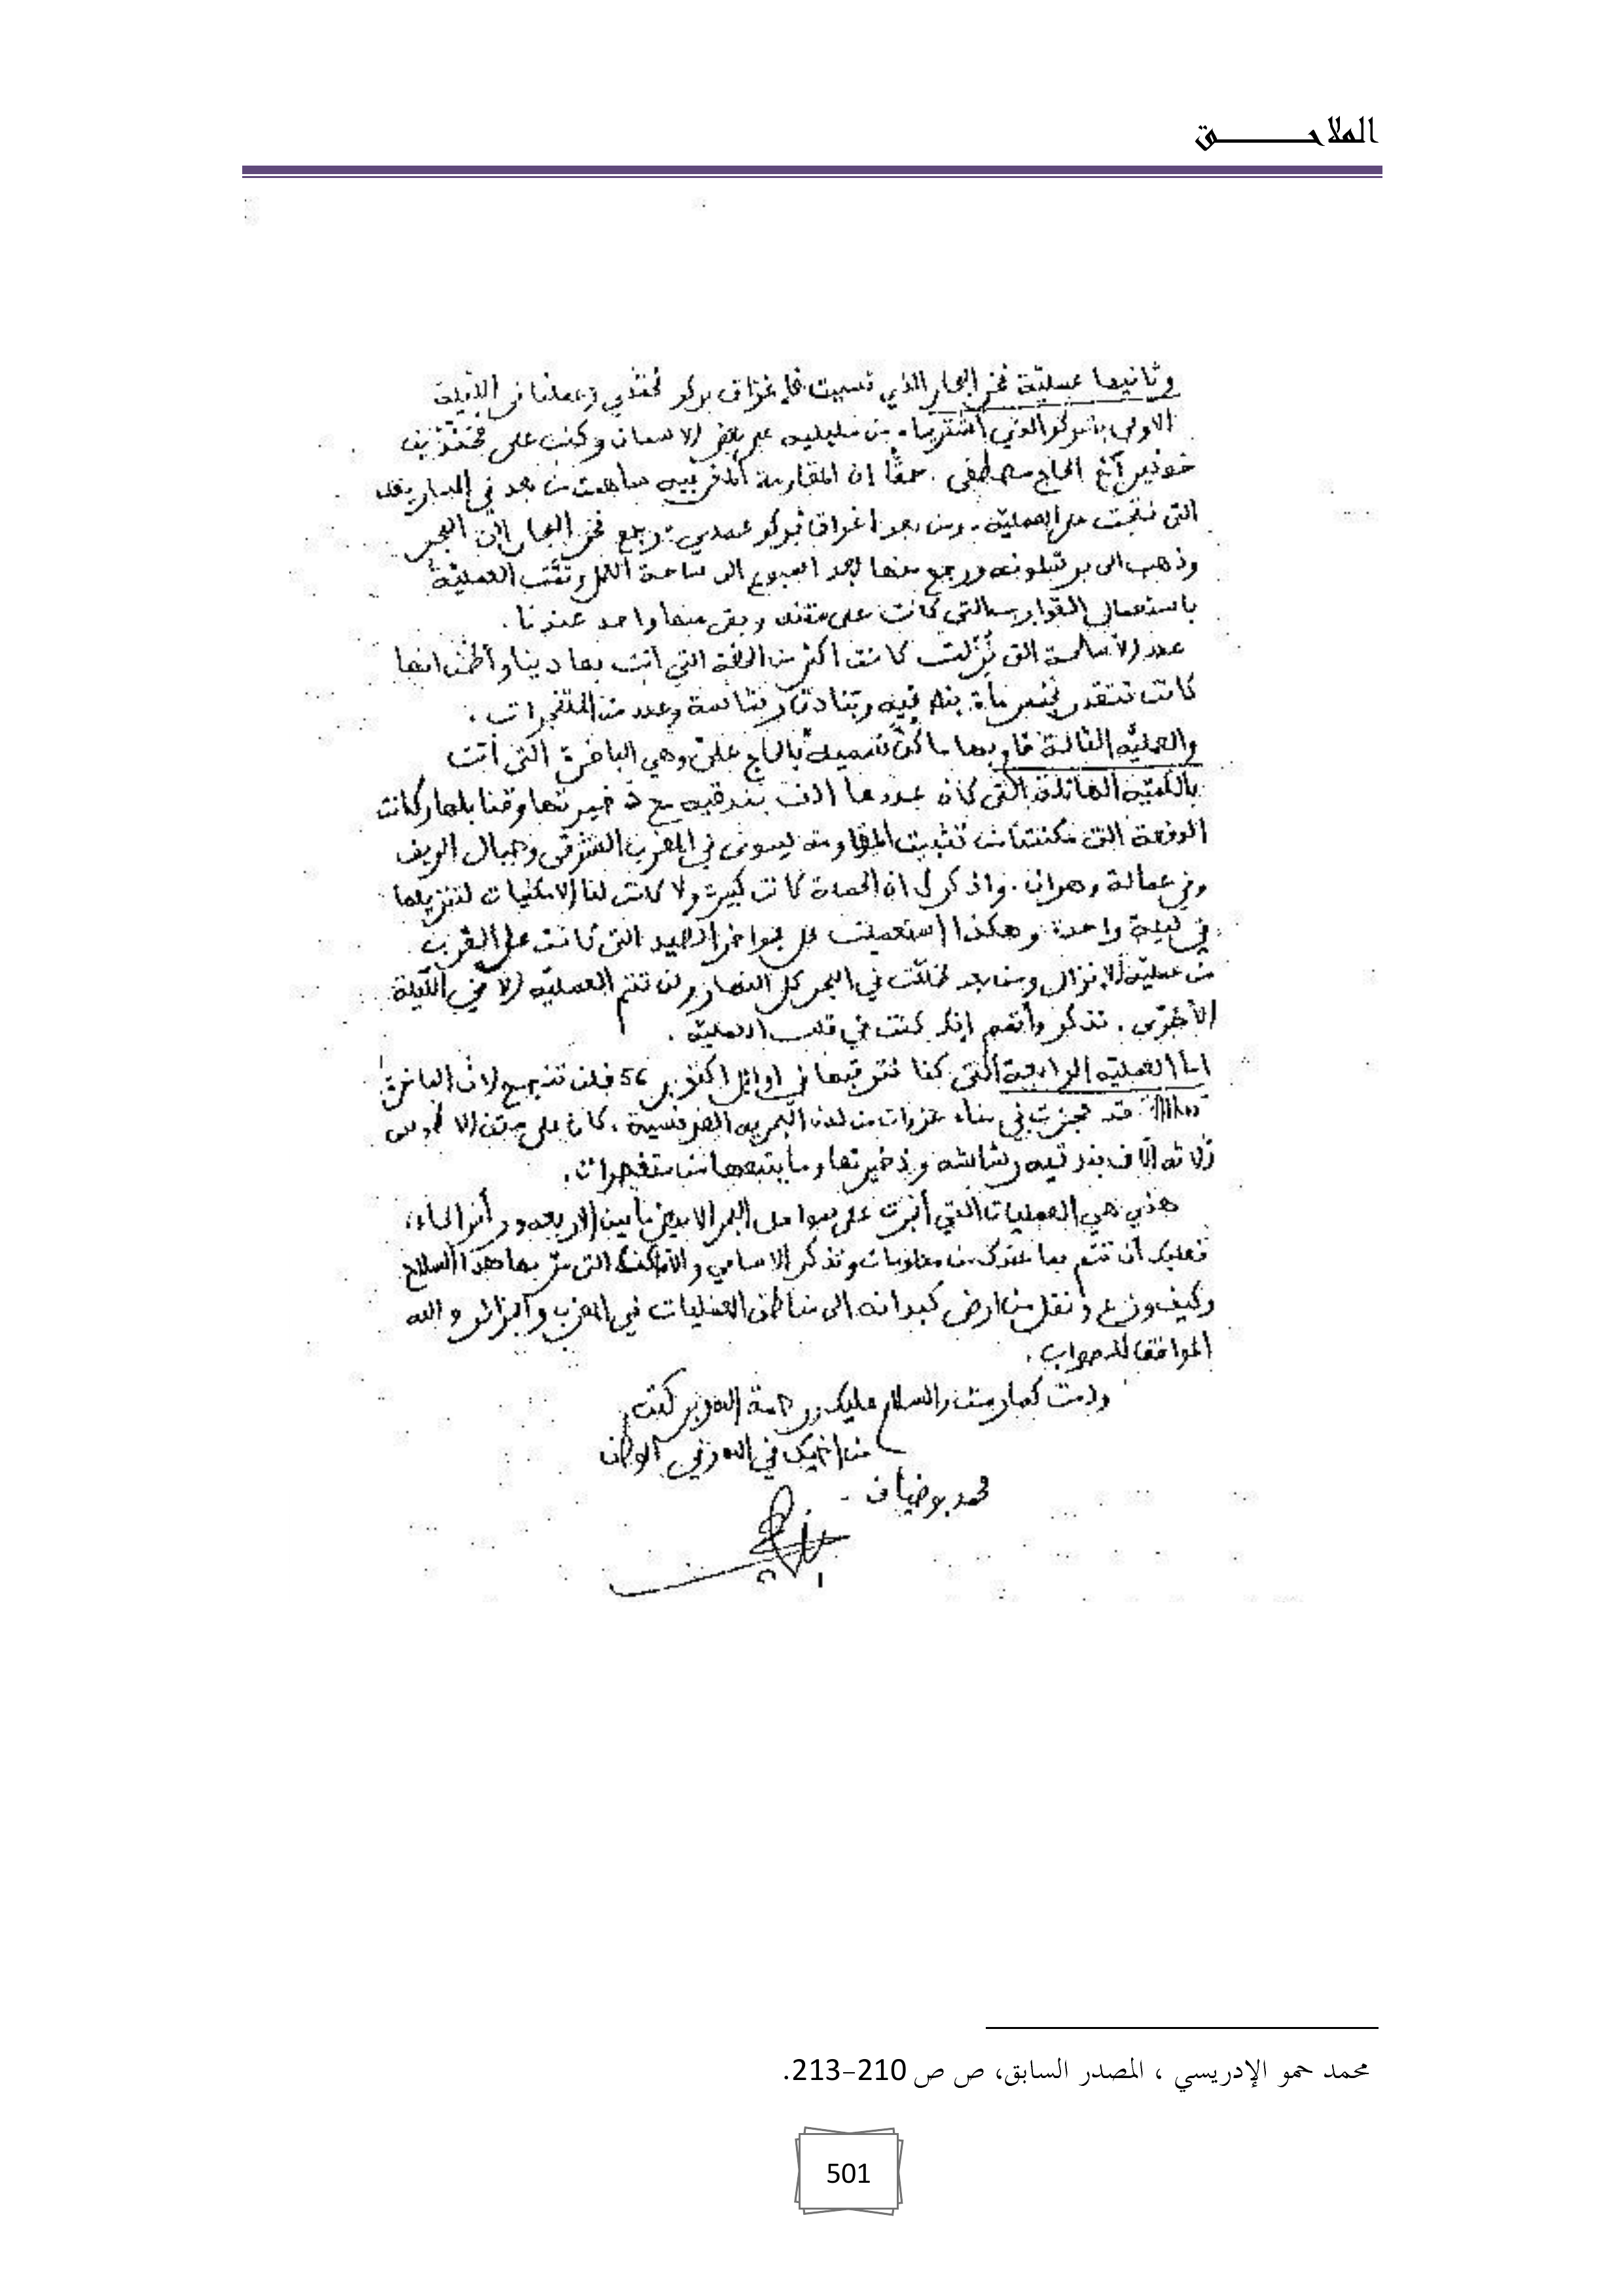 الملاحـــــــــق
وثانيها عملية فخر البحار الذي تسببت في إغراق بركو وعملنا في الليلة
الاولى الذي اشتريناه من مليلية على الاسبان وكنت على
الحاج مصطفى . حقا ان المقاومة المغربية ساهمت من بعد في
التي نتجت من العملية . ومن بعد اغراق رجع فخر البحار الى البحر
وذهب الى برشلونة ورجع منها بعد اسبوع الى ساحة العمل وتمت العملية
باستعمال القوارب التي كانت على متنه وبقي منها واحد عندنا .
عدد الأسلحة التي نزلت كانت أكثر من الدفعة التي أتت بها دينا وأظن انها
كانت تتقدر بخمس مأة بندقية وبنادق رشاشة وعدد من المتفجرات .
والعملية الثالثة قاربها ما كنا نسميه بالحاج علي وهي الباخرة التي أتت
بالكمية الهائلة التي كان عددها ألف بندقية مع ذخيرتها وكانت
الدفعة التي مكنتنا من تثبيت المقاومة ليس في المغرب الشرقي وجبال الريف
وفي عمالة وهران . واذكر لك ان الحمولة كانت كبيرة ولا كانت لنا الامكنيات لتنزيلها
في ليلة واحدة وهكذا استعملت كل بواخر الصيد التي كانت على القرب
من عملية الانزال ومن بعد ظلت في البحر كل النهار ولن تتم العملية إلا في الليلة
الأخرى . تذكر وأنك كنت في قلب العملية .
اما العملية الرابعة التي كنا نترقبها في اوائل اكتوبر 56 فلن تنجح لان الباخرة
قد حجزت في ميناء من لدن البحرية الفرنسية . كان على متن الاطوس
ثلاثة آلاف بندقية رشاشة وذخيرتها وما يتبعها من متفجرات .
هذي هي العمليات التي أجرت على سواحل البحر الابيض ما بين الاربعة ورأس الماء ،
فعليك أن تتم بما عندك من معلومات وتذكر الاسامي والأماكن التي مر بها هذا السلاح
وكيف وزع ونقل من ارض كبدانة الى مناطق العمليات في المغرب والجزائر والله
الموافق للصواب .
ودمت كما رمت والسلام عليك ورحمة الله وبركته
من اخيك في الله وفي الوطن
محمد بوضياف -
محمد حمو الإدريسي ، المصدر السابق، ص ص 210-213.
501